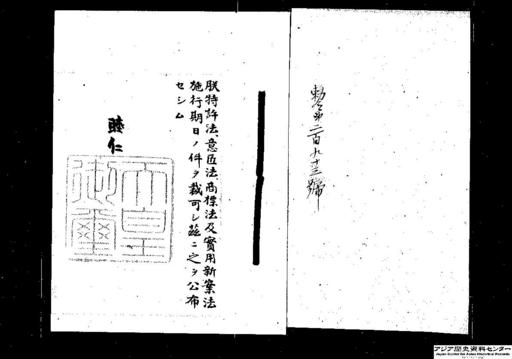 勅令第二百九十三號
朕特許法、意匠法、商標法及實用新案法
施行期日ノ件ヲ裁可シ茲ニ之ヲ公布
セシム
睦仁
天皇
御璽
アジア歴史資料センター
Japan Center for Asian Historical Records